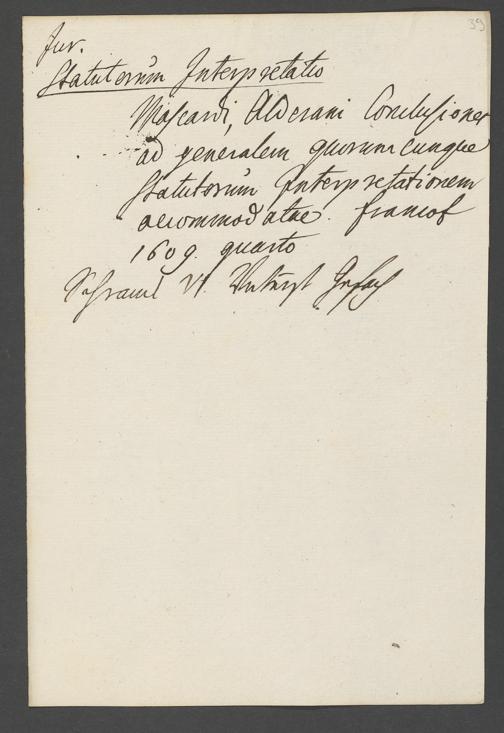 39
Jur.
Statutorum Interpretatio
Mascardi, Alderani Conclusiones
ad generalem quorumcunque
Statutorum Interpretationem
accommodatae. francof
1609. quarto
VI.